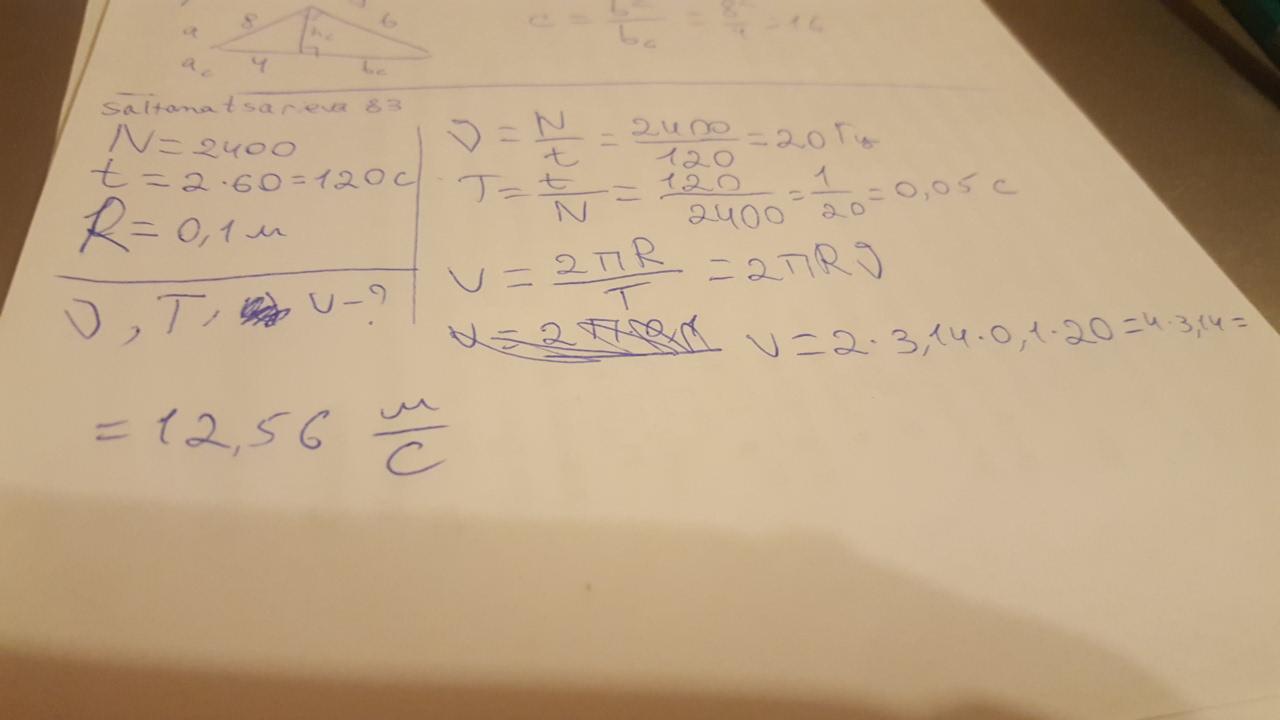 a 8 h_c б
a_c 4 b_c
c = b²/b_c = 8²/4 = 16
saltanatsarieva 83
N = 2400
t = 2 · 60 = 120 с
R = 0,1 м
ν, T, v - ?
ν = N/t = 2400/120 = 20 Гц
T = t/N = 120/2400 = 1/20 = 0,05 с
v = 2πR/T = 2πRν
v = 2 · 3,14 · 0,1 · 20 = 4 · 3,14 =
= 12,56 м/с